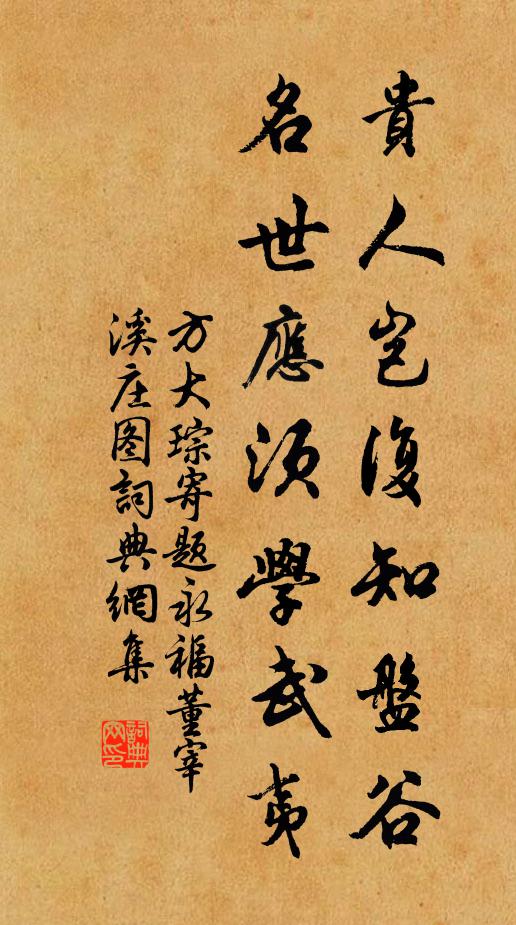 貴人岂復知盤谷
名世應須學武夷
方大琮寄題永福董宰
溪庄图詞典網集
詞典網印